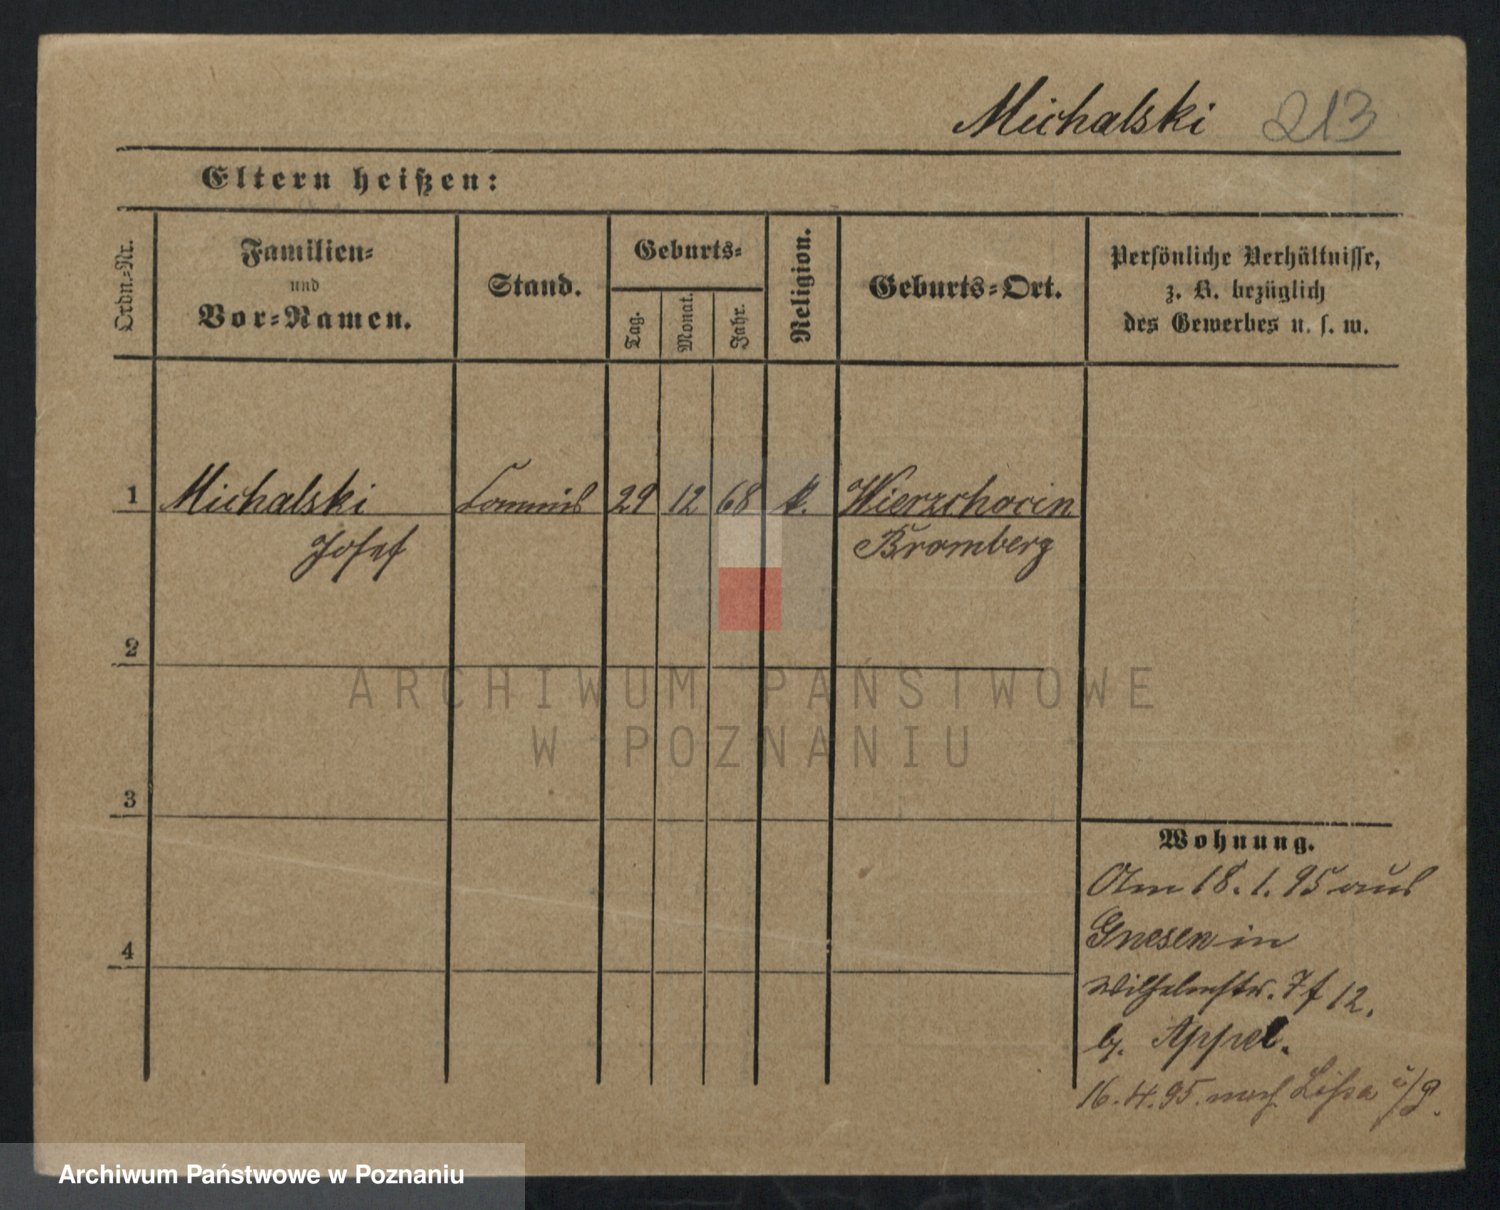 Michalski 213
Eltern heißen:
Ordn.=Nr.
Familien=
und
Vor=Namen.
Stand.
Geburts=
Tag.
Monat.
Jahr.
Religion.
Geburts=Ort.
Persönliche Verhältnisse,
z. B. bezüglich
des Gewerbes u. s. w.
1 Michalski Commis 29 12 68 k. Wierzchocin
Josef Bromberg
2
3
4
Wohnung.
Am 18.1.95 aus
Gnesen in
Wilhelmstr. 7 f 12.
b. Appel.
16.4.95. nach Lissa i/P.
ARCHIWUM PAŃSTWOWE
W POZNANIU
Archiwum Państwowe w Poznaniu